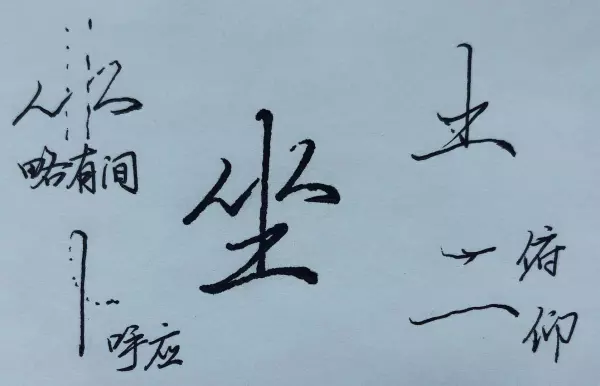 坐
略有间
呼应
土
俯
仰